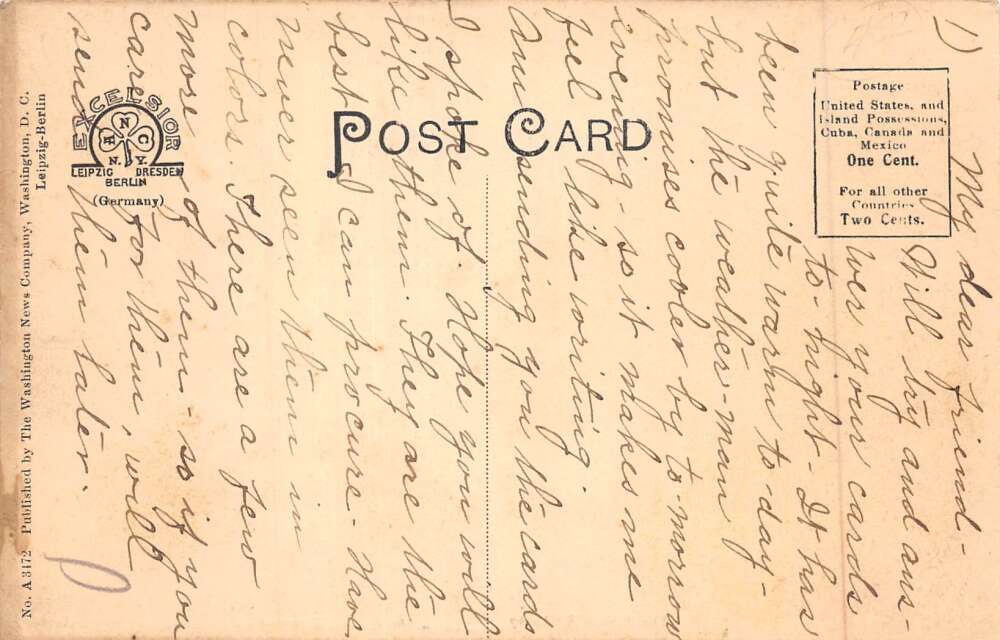 1)
My dear friend-
Will try and ans-
wer your cards
to-night- It has
been quite warm to-day-
but the weather-man
promises cooler by to-morrow
evening- so it makes me
feel like writing.
Am sending you the cards
I spoke of. Hope you will
like them. They are the
best I can procure- Have
never seen them in
colors. There are a few
more of them- so if you
care for them, will
send them later.
POST CARD
Postage
United States, and
Island Possessions,
Cuba, Canada and
Mexico
One Cent.
For all other
Countries
Two Cents.
EXCELSIOR
N
E C
N.Y.
LEIPZIG DRESDEN
BERLIN
(Germany)
No. A 3172 Published by The Washington News Company, Washington, D. C.
Leipzig-Berlin